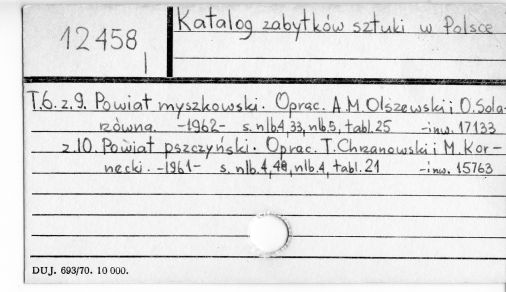 12458
I
Katalog zabytków sztuki w Polsce
T.6. z.9. Powiat myszkowski. Oprac. A.M.Olszewski i O.Sola-
rzówna. -1962- s.nlb.4,33,nlb.5, tabl.25 -inw. 17133
z.10. Powiat pszczyński. Oprac. T.Chrzanowski i M.Kor-
necki. -1961- s.nlb.4,40,nlb.4, tabl.21 -inw. 15763
DUJ. 693/70. 10 000.